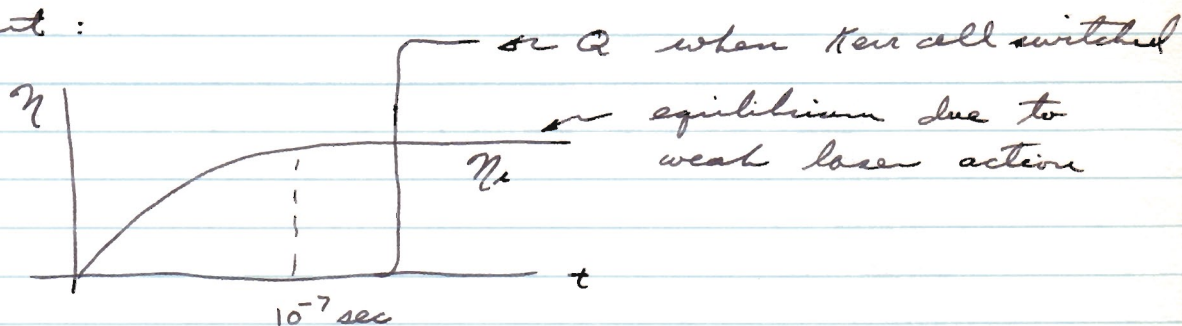 nt :
Q when Kerr cell switched
η
equilibrium due to
weak laser action
ηi
t
10⁻⁷ sec